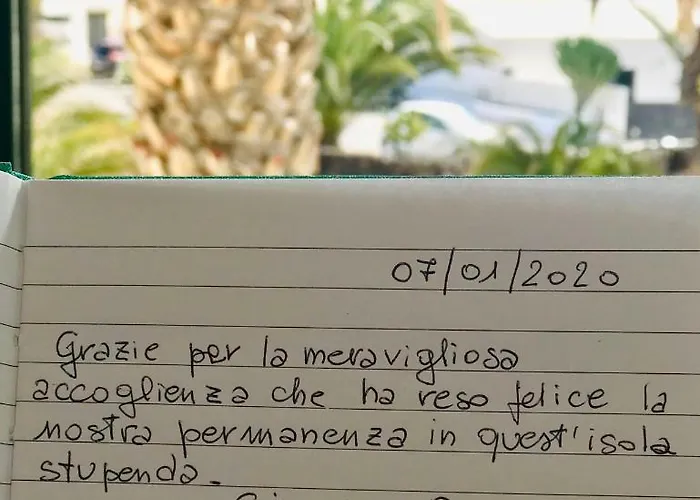 07/01/2020
Grazie per la meravigliosa
accoglienza che ha reso felice la
nostra permanenza in quest'isola
stupenda.